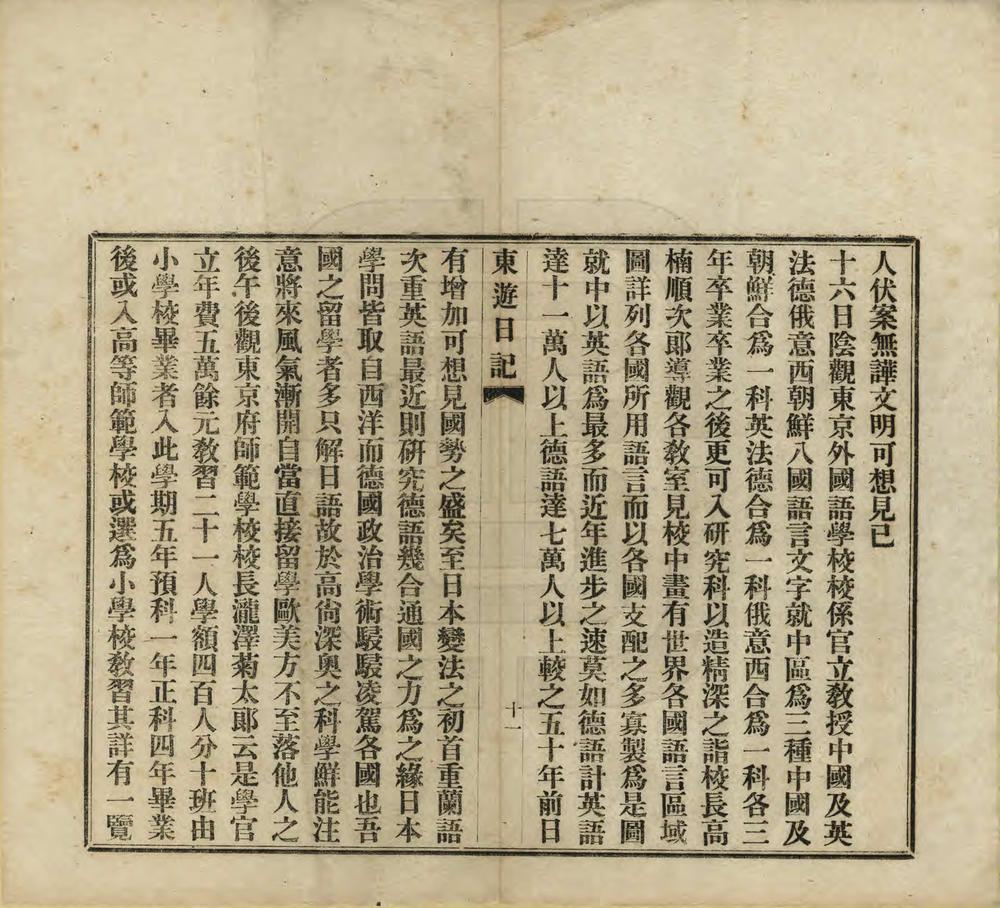 人伏案無譁文明可想見已
十六日陰觀東京外國語學校校係官立教授中國及英
法德俄意西朝鮮八國語言文字就中區爲三種中國及
朝鮮合爲一科英法德合爲一科俄意西合爲一科各三
年卒業卒業之後更可入研究科以造精深之詣校長高
楠順次郎導觀各教室見校中畫有世界各國語言區域
圖詳列各國所用語言而以各國支配之多寡製爲是圖
就中以英語爲最多而近年進步之速莫如德語計英語
達十一萬人以上德語達七萬人以上較之五十年前日
東遊日記
十一
有增加可想見國勢之盛矣至日本變法之初首重蘭語
次重英語最近則研究德語幾合通國之力爲之緣日本
學問皆取自西洋而德國政治學術駸駸凌駕各國也吾
國之留學者多只解日語故於高尙深奧之科學鮮能注
意將來風氣漸開自當直接留學歐美方不至落他人之
後午後觀東京府師範學校校長瀧澤菊太郎云是學官
立年費五萬餘元教習二十一人學額四百人分十班由
小學校畢業者入此學期五年預科一年正科四年畢業
後或入高等師範學校或選爲小學校教習其詳有一覽